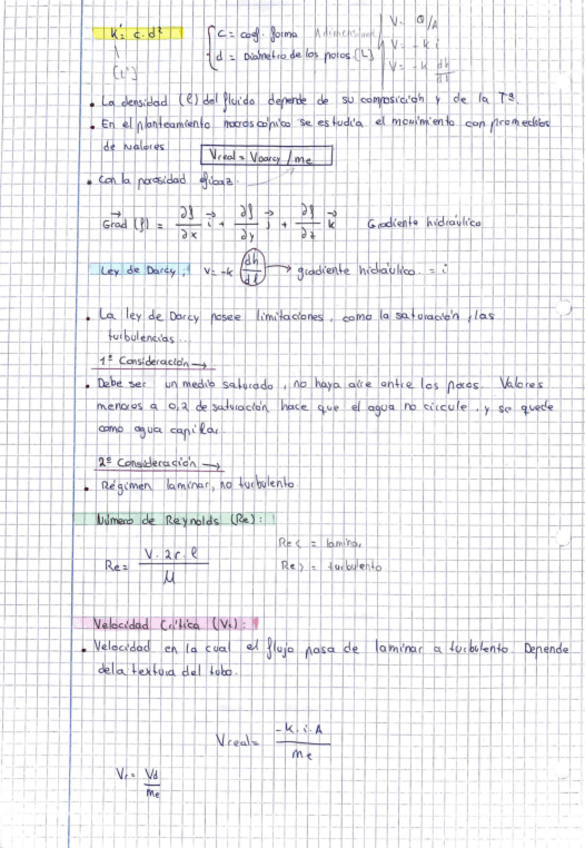 K' = c·d²
{ c = coef. forma Adimensional
d = Diámetro de los poros. (L)
V = Q/A
V = -k i
V = -k dh/dl
(L²)
• La densidad (ρ) del fluido depende de su composición y de la Tª.
• En el planteamiento macroscópico se estudia el movimiento con promedios
de valores
Vreal = VDarcy / me
• Con la porosidad eficaz.
Grad (f) = ∂f/∂x i + ∂f/∂y j + ∂f/∂z k Gradiente hidráulico
Ley de Darcy: V = -k dh/dl → gradiente hidráulico. = i
• La ley de Darcy posee limitaciones, como la saturación, las
turbulencias...
1ª Consideración →
• Debe ser un medio saturado, no haya aire entre los poros. Valores
menores a 0,2 de saturación hace que el agua no circule, y se quede
como agua capilar.
2ª Consideración →
• Régimen laminar, no turbulento.
Número de Reynolds (Re):
Re = V·2r·ρ / μ
Re< = laminar
Re> = turbulento
Velocidad Crítica (Vc):
• Velocidad en la cual el flujo pasa de laminar a turbulento. Depende
de la textura del tubo.
Vreal = -k·i·A / me
Vr = Vd / me